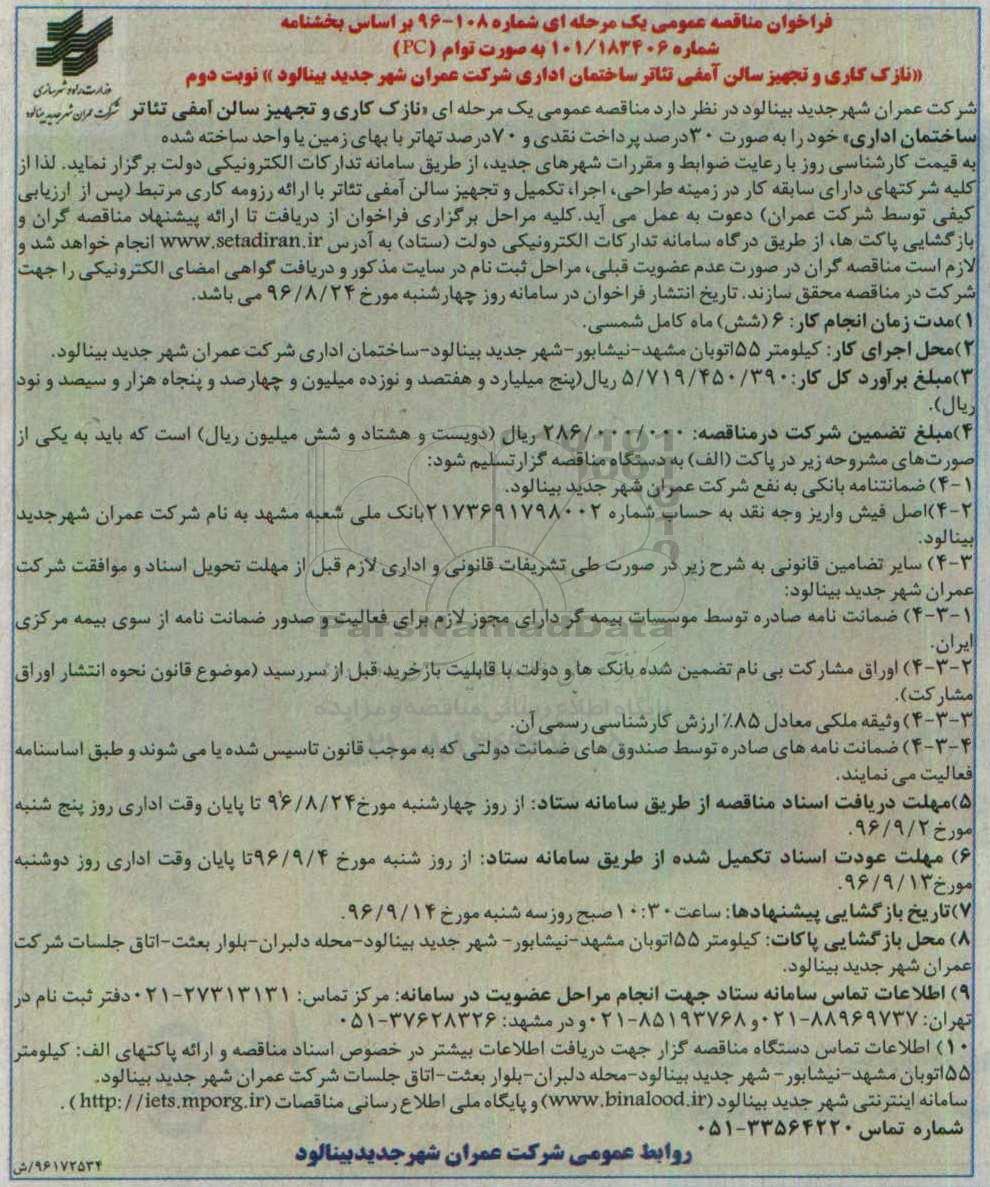 فراخوان مناقصه عمومی یک مرحله ای شماره ۱۰۸-۹۶ بر اساس بخشنامه
شماره ۱۰۱/۱۸۳۴۰۶ به صورت توام (PC)
«نازک کاری و تجهیز سالن آمفی تئاتر ساختمان اداری شرکت عمران شهر جدید بینالود» نوبت دوم
وزارت راه و شهرسازی
شرکت عمران شهر جدید بینالود
شرکت عمران شهرجدید بینالود در نظر دارد مناقصه عمومی یک مرحله ای «نازک کاری و تجهیز سالن آمفی تئاتر
ساختمان اداری» خود را به صورت ۳۰درصد پرداخت نقدی و ۷۰درصد تهاتر با بهای زمین یا واحد ساخته شده
به قیمت کارشناسی روز با رعایت ضوابط و مقررات شهرهای جدید، از طریق سامانه تدارکات الکترونیکی دولت برگزار نماید. لذا از
کلیه شرکتهای دارای سابقه کار در زمینه طراحی، اجرا، تکمیل و تجهیز سالن آمفی تئاتر با ارائه رزومه کاری مرتبط (پس از ارزیابی
کیفی توسط شرکت عمران) دعوت به عمل می آید.کلیه مراحل برگزاری فراخوان از دریافت تا ارائه پیشنهاد مناقصه گران و
بازگشایی پاکت ها، از طریق درگاه سامانه تدارکات الکترونیکی دولت (ستاد) به آدرس www.setadiran.ir انجام خواهد شد و
لازم است مناقصه گران در صورت عدم عضویت قبلی، مراحل ثبت نام در سایت مذکور و دریافت گواهی امضای الکترونیکی را جهت
شرکت در مناقصه محقق سازند. تاریخ انتشار فراخوان در سامانه روز چهارشنبه مورخ ۹۶/۸/۲۴ می باشد.
۱)مدت زمان انجام کار: ۶ (شش) ماه کامل شمسی.
۲)محل اجرای کار: کیلومتر ۵۵اتوبان مشهد-نیشابور-شهر جدید بینالود-ساختمان اداری شرکت عمران شهر جدید بینالود.
۳)مبلغ برآورد کل کار:۵/۷۱۹/۴۵۰/۳۹۰ ریال(پنج میلیارد و هفتصد و نوزده میلیون و چهارصد و پنجاه هزار و سیصد و نود
ریال).
۴)مبلغ تضمین شرکت درمناقصه: ۲۸۶/۰۰۰/۰۰۰ ریال (دویست و هشتاد و شش میلیون ریال) است که باید به یکی از
صورت‌های مشروحه زیر در پاکت (الف) به دستگاه مناقصه گزارتسلیم شود:
۴-۱) ضمانتنامه بانکی به نفع شرکت عمران شهر جدید بینالود.
۴-۲)اصل فیش واریز وجه نقد به حساب شماره ۲۱۷۳۶۹۱۷۹۸۰۰۲بانک ملی شعبه مشهد به نام شرکت عمران شهرجدید
بینالود.
۴-۳) سایر تضامین قانونی به شرح زیر در صورت طی تشریفات قانونی و اداری لازم قبل از مهلت تحویل اسناد و موافقت شرکت
عمران شهر جدید بینالود:
۴-۳-۱) ضمانت نامه صادره توسط موسسات بیمه گر دارای مجوز لازم برای فعالیت و صدور ضمانت نامه از سوی بیمه مرکزی
ایران.
۴-۳-۲) اوراق مشارکت بی نام تضمین شده بانک ها و دولت با قابلیت بازخرید قبل از سررسید (موضوع قانون نحوه انتشار اوراق
مشارکت).
۴-۳-۳) وثیقه ملکی معادل ۸۵٪ ارزش کارشناسی رسمی آن.
۴-۳-۴) ضمانت نامه های صادره توسط صندوق های ضمانت دولتی که به موجب قانون تاسیس شده یا می شوند و طبق اساسنامه
فعالیت می نمایند.
۵)مهلت دریافت اسناد مناقصه از طریق سامانه ستاد: از روز چهارشنبه مورخ۹۶/۸/۲۴ تا پایان وقت اداری روز پنج شنبه
مورخ ۹۶/۹/۲.
۶) مهلت عودت اسناد تکمیل شده از طریق سامانه ستاد: از روز شنبه مورخ ۹۶/۹/۴تا پایان وقت اداری روز دوشنبه
مورخ۹۶/۹/۱۳.
۷)تاریخ بازگشایی پیشنهادها: ساعت ۱۰:۳۰صبح روزسه شنبه مورخ ۹۶/۹/۱۴.
۸) محل بازگشایی پاکات: کیلومتر ۵۵اتوبان مشهد-نیشابور- شهر جدید بینالود-محله دلبران-بلوار بعثت-اتاق جلسات شرکت
عمران شهر جدید بینالود.
۹) اطلاعات تماس سامانه ستاد جهت انجام مراحل عضویت در سامانه: مرکز تماس: ۲۷۳۱۳۱۳۱-۰۲۱دفتر ثبت نام در
تهران: ۸۸۹۶۹۷۳۷-۰۲۱و ۸۵۱۹۳۷۶۸-۰۲۱و در مشهد: ۳۷۶۲۸۳۲۶-۰۵۱
۱۰) اطلاعات تماس دستگاه مناقصه گزار جهت دریافت اطلاعات بیشتر در خصوص اسناد مناقصه و ارائه پاکتهای الف: کیلومتر
۵۵اتوبان مشهد-نیشابور- شهر جدید بینالود-محله دلبران-بلوار بعثت-اتاق جلسات شرکت عمران شهر جدید بینالود.
سامانه اینترنتی شهر جدید بینالود (www.binalood.ir) و پایگاه ملی اطلاع رسانی مناقصات (http://iets.mporg.ir).
شماره تماس ۳۳۵۶۴۲۲۰-۰۵۱
روابط عمومی شرکت عمران شهرجدیدبینالود
۹۶۱۷۲۵۳۴/ش
ParsNamadData
پایگاه اطلاع رسانی مناقصه و مزایده